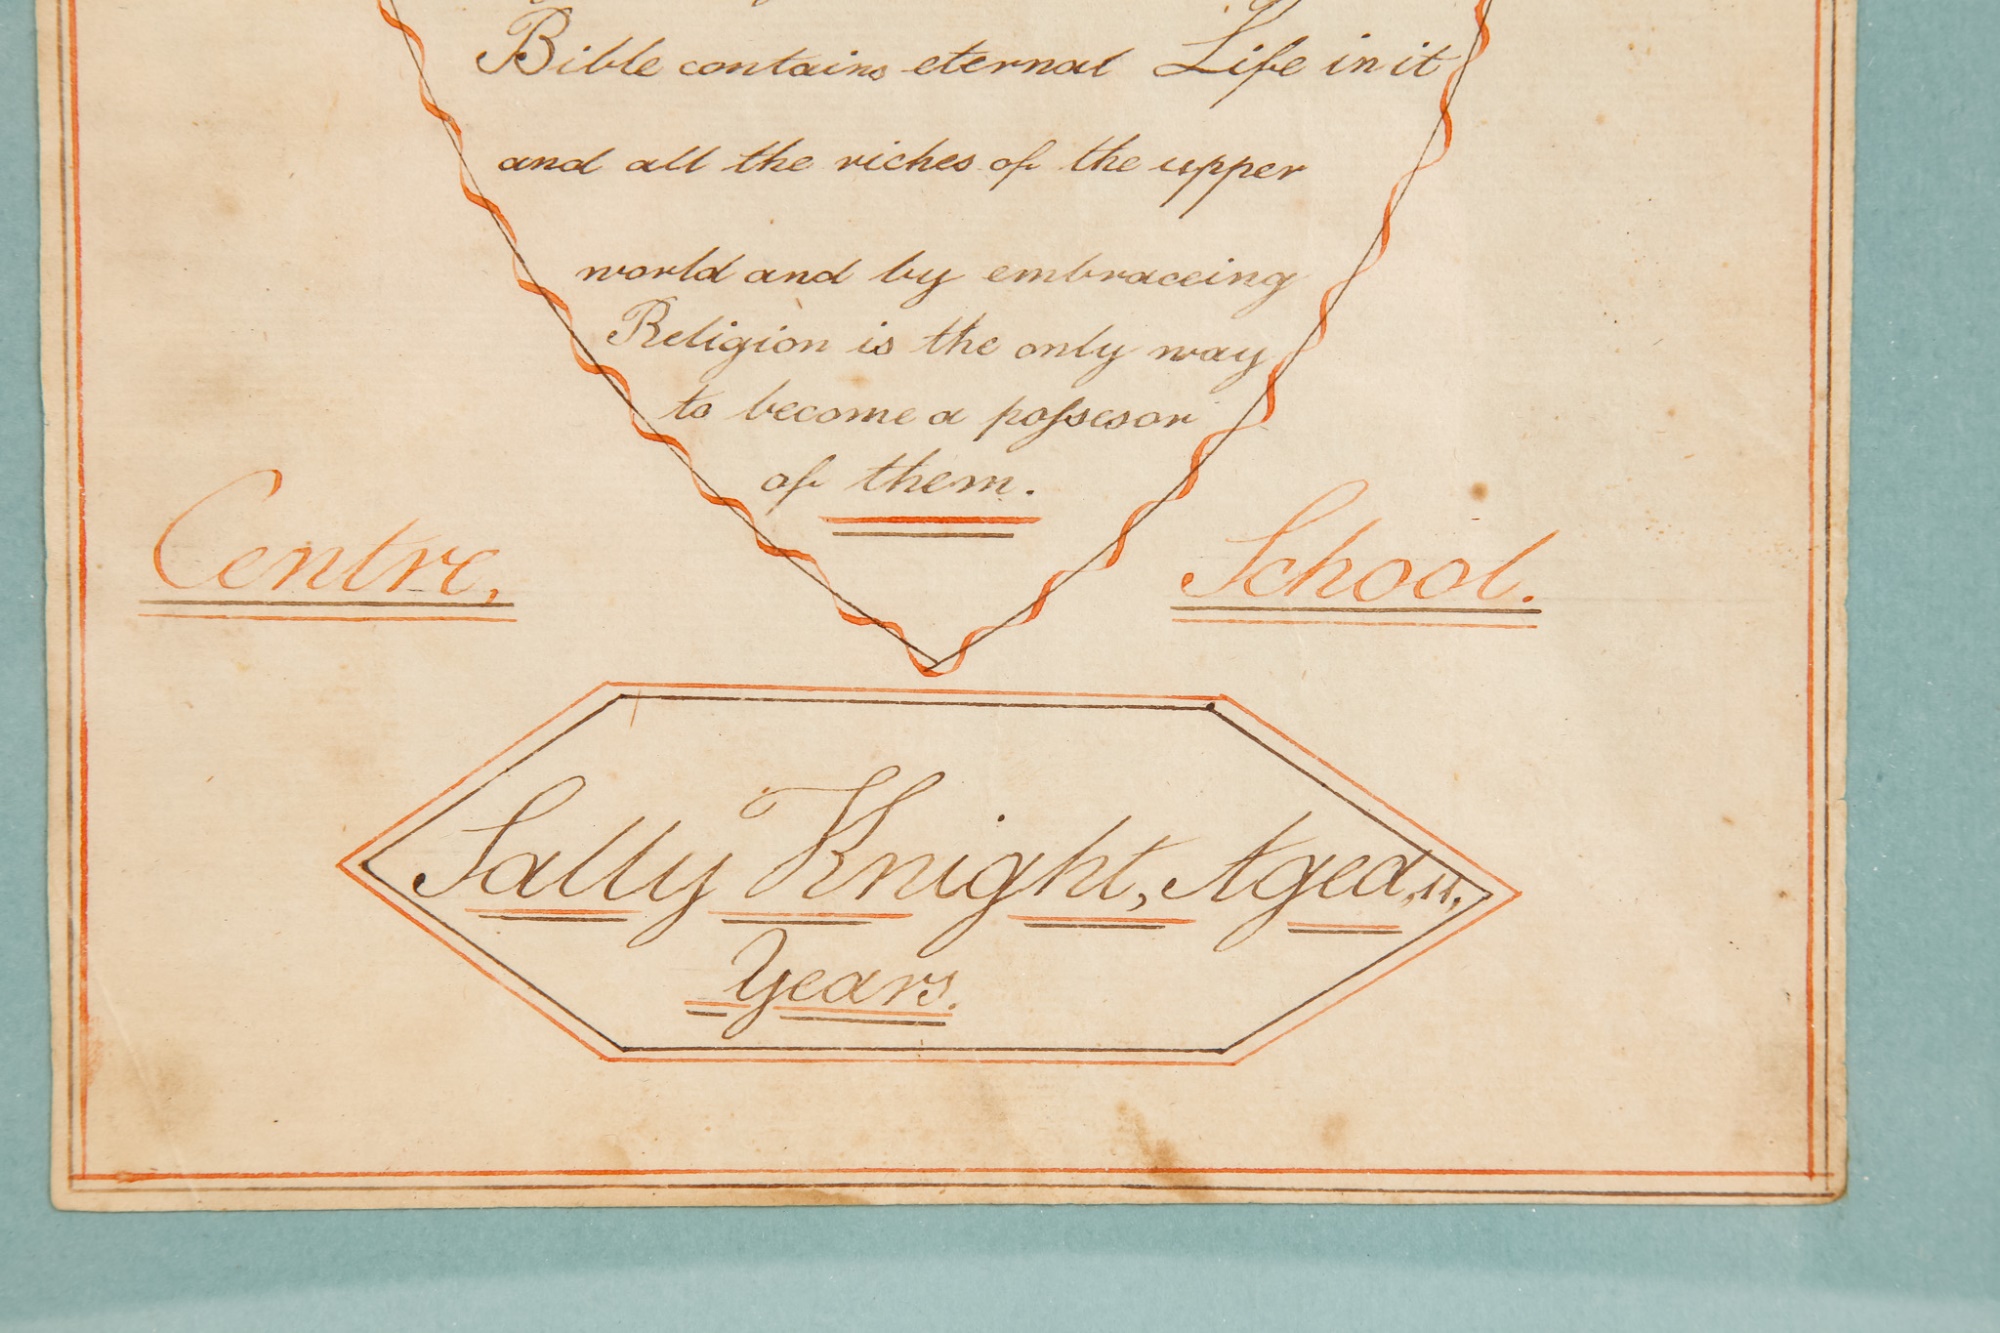 Bible contains eternal Life in it
and all the riches of the upper
world and by embraceing
Religion is the only way
to become a possesor
of them.
Centre, School.
Sally Knight, Aged, 11,
Years.